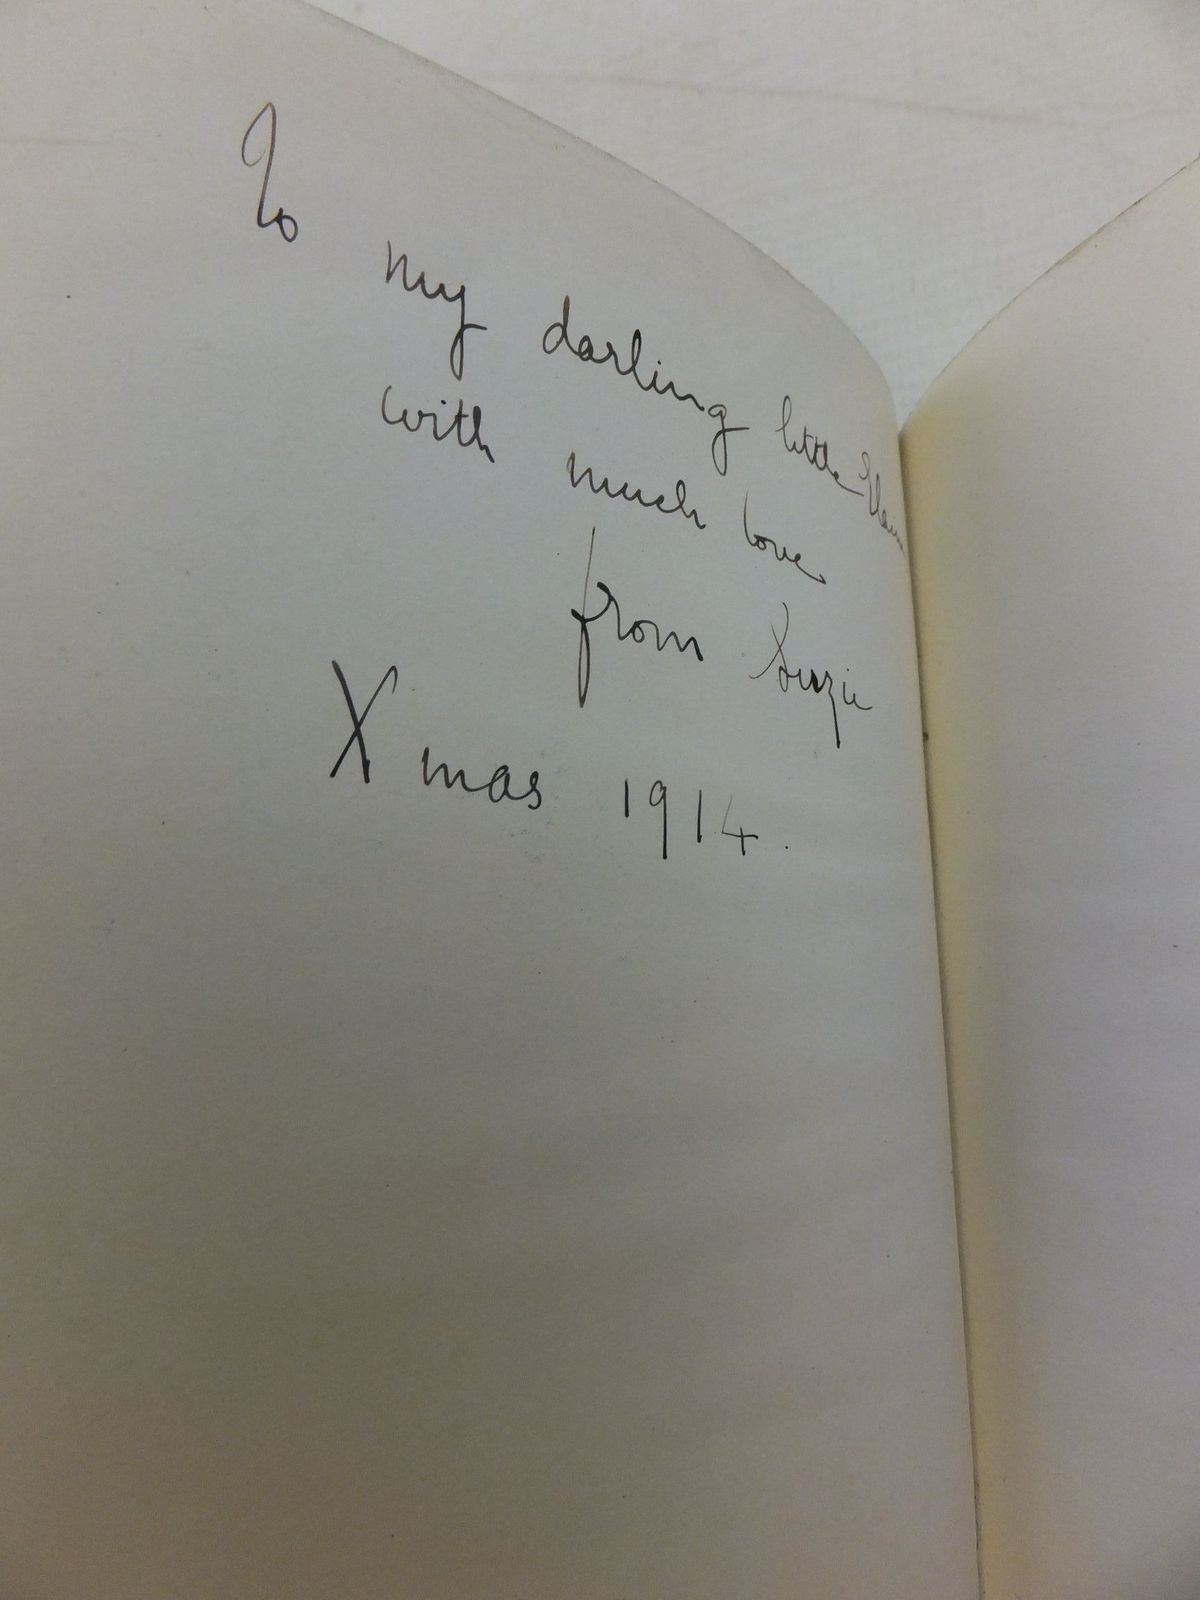 To
my darling little Elaine
with much love
from Suzie
Xmas 1914.